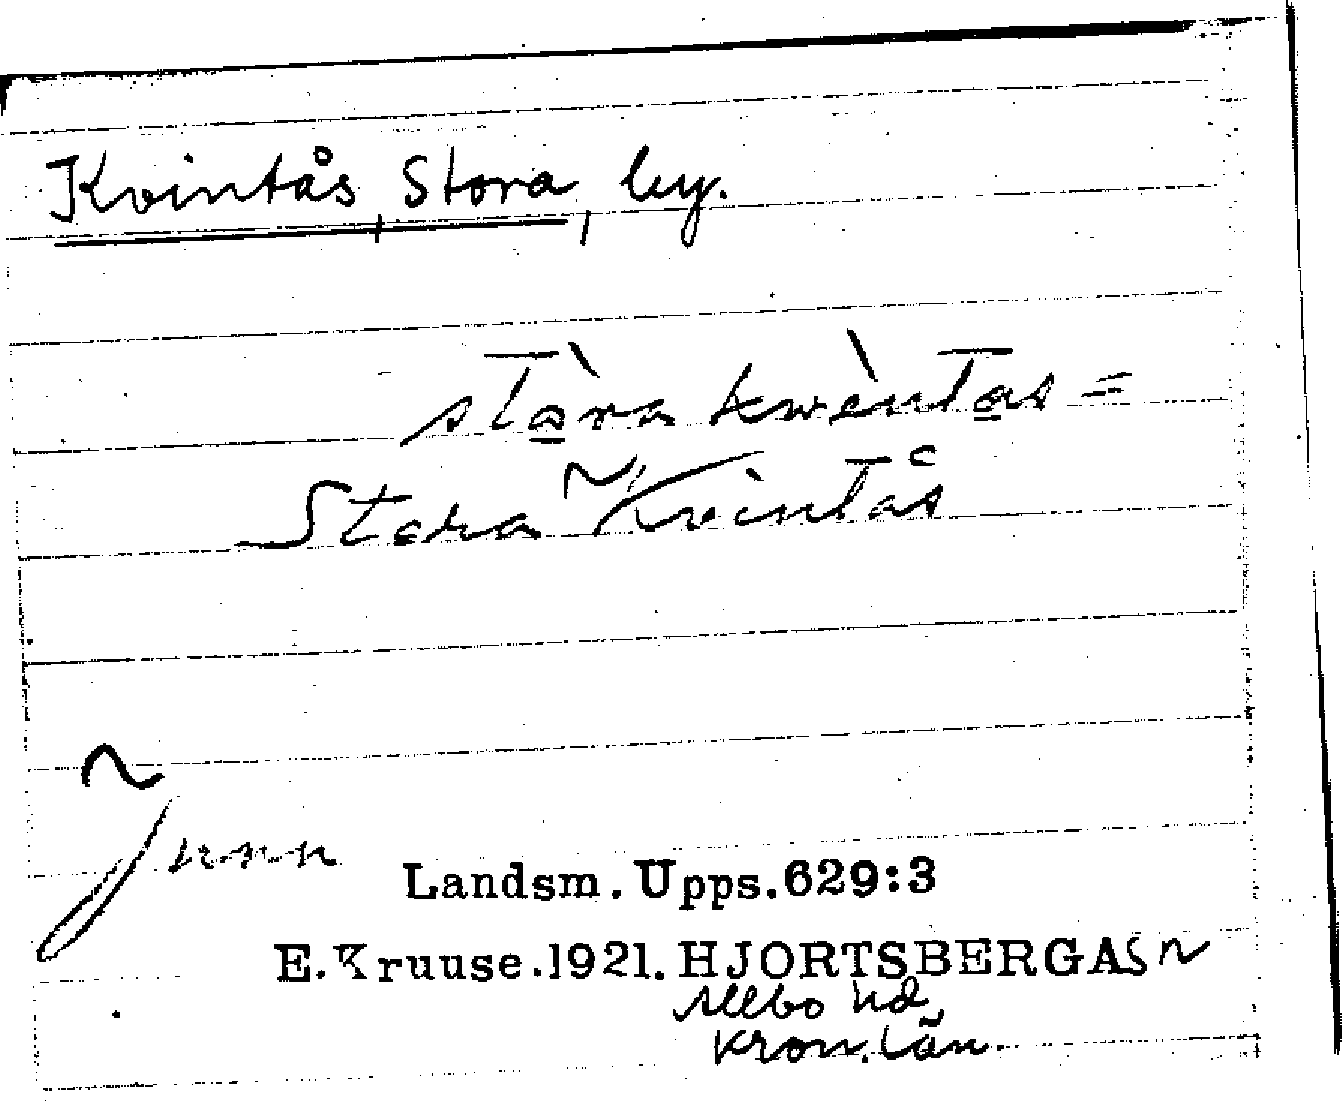 Kvintås, Stora, by.
stàra kwèntas =
Stora Kvintås
Landsm. Upps. 629:3
E. Kruuse. 1921. HJORTSBERGA Sn
Allbo hd,
Kron. län